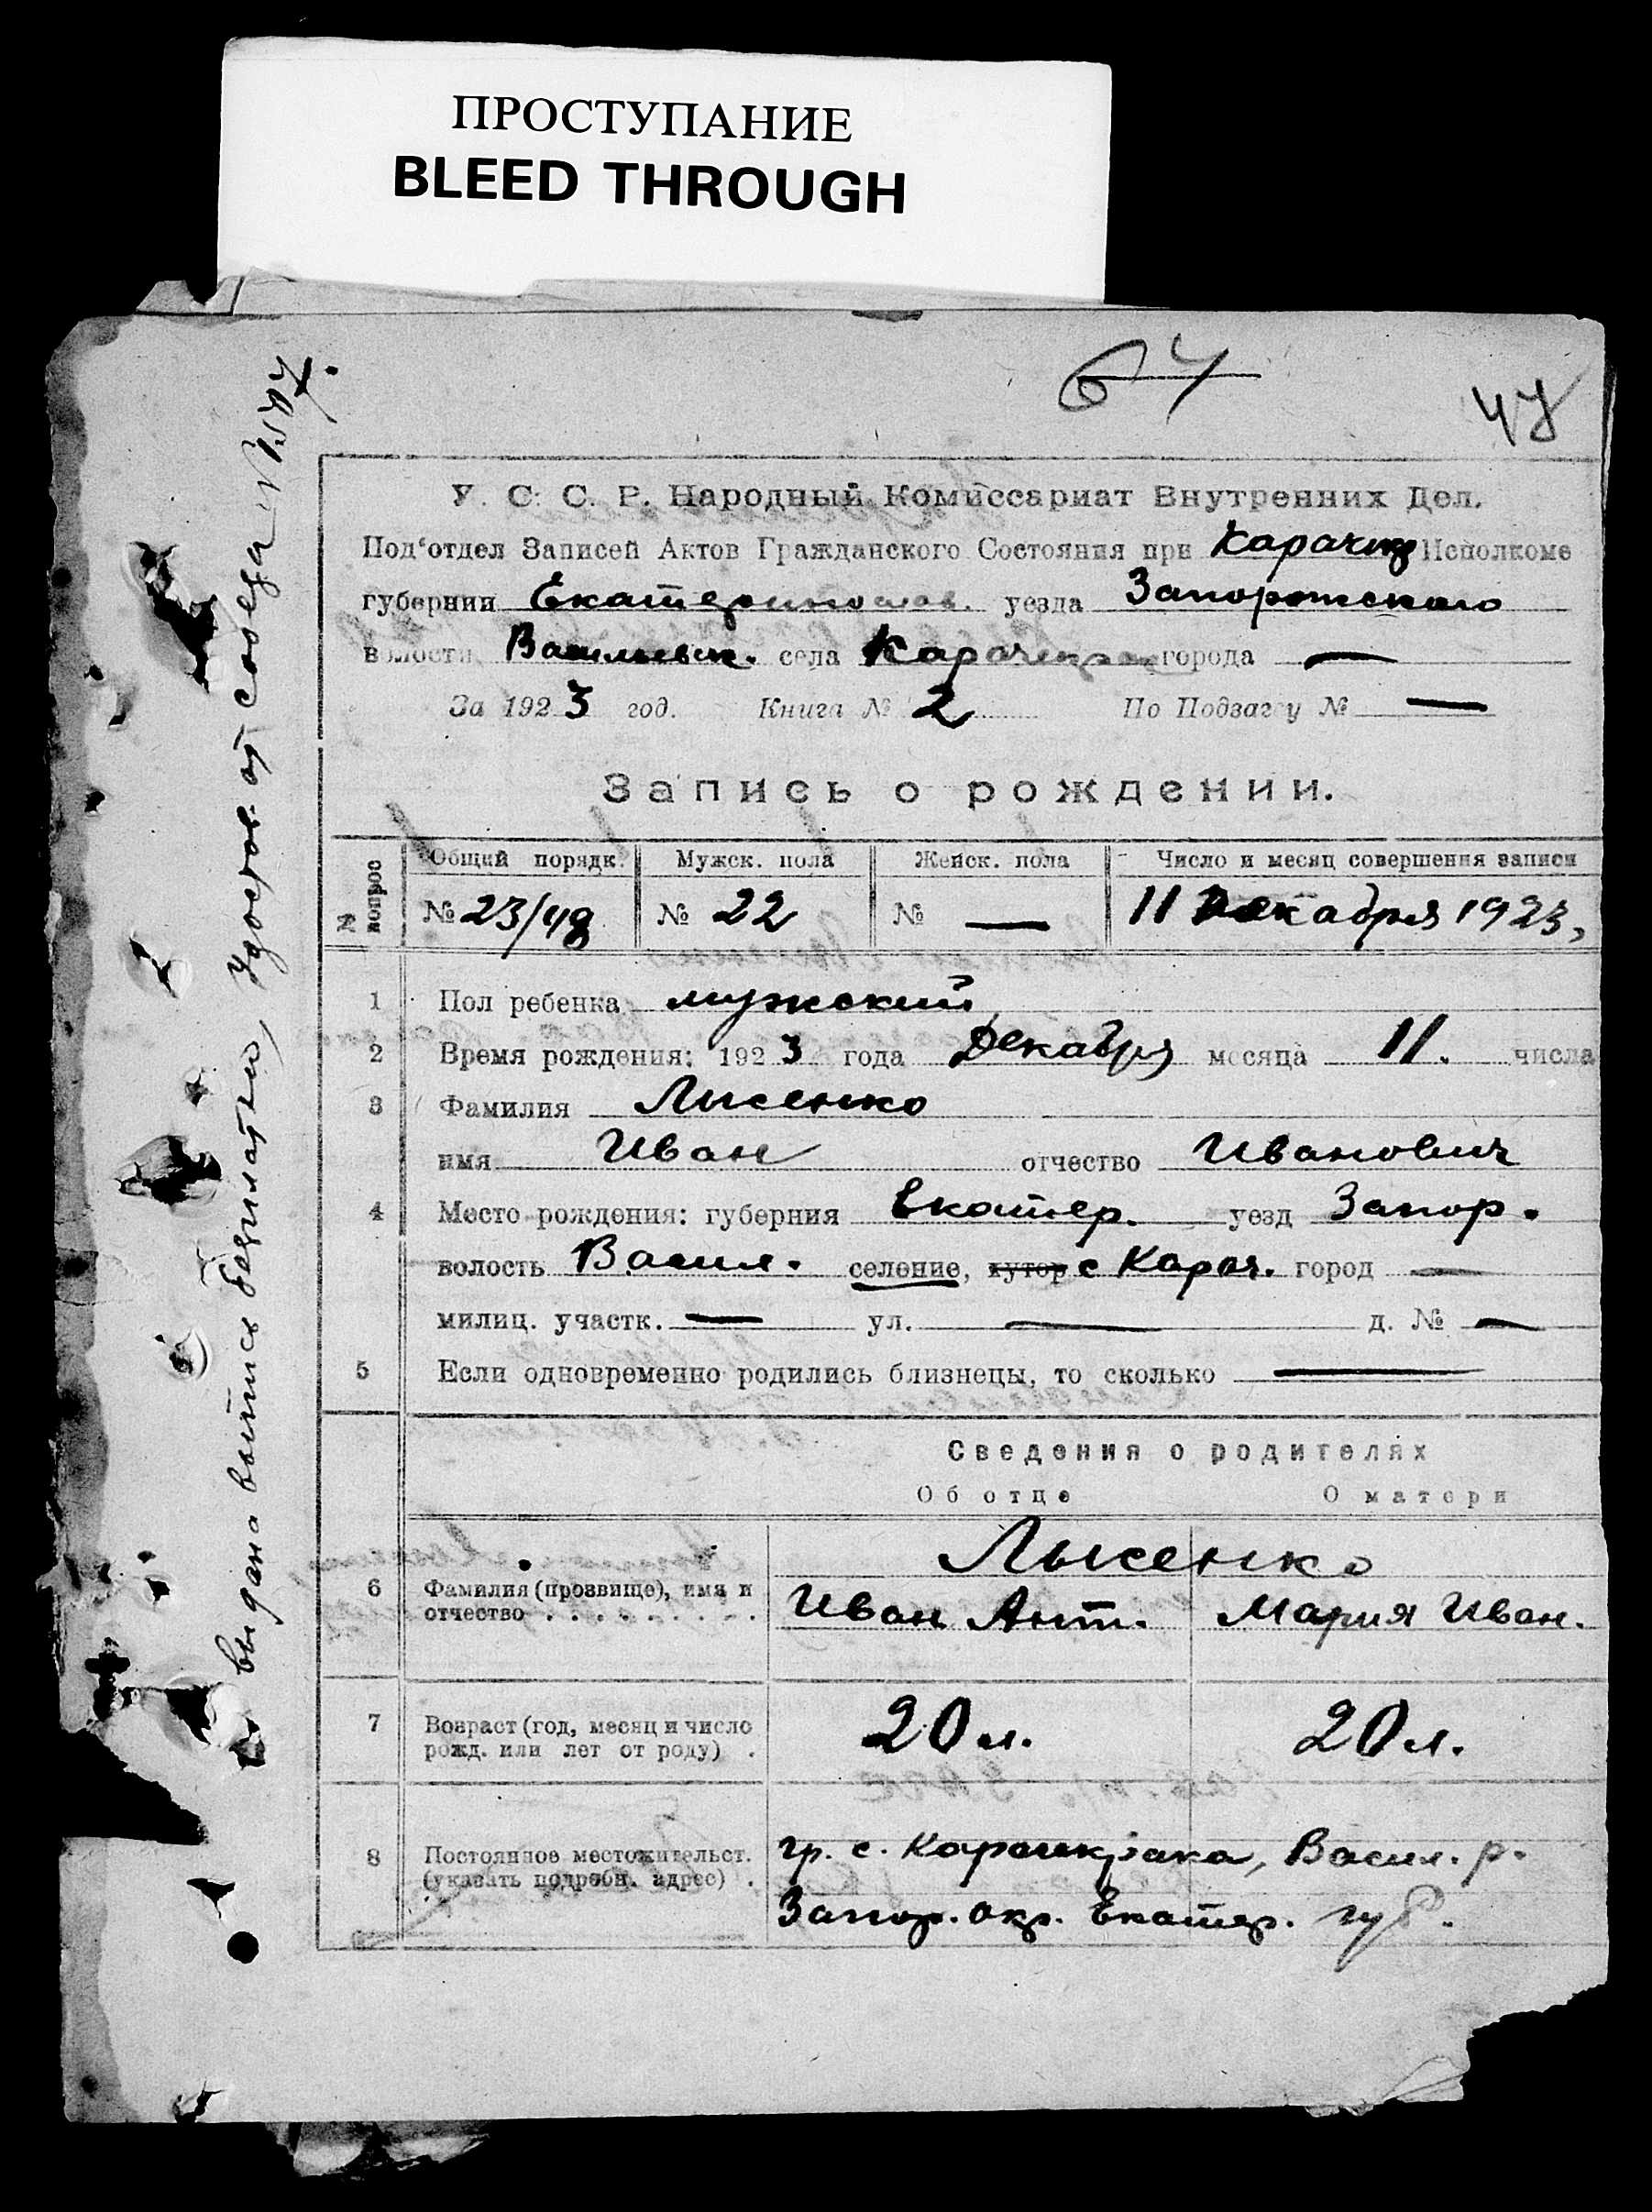 ПРОСТУПАНИЕ
BLEED THROUGH
64
47
У. С. С. Р. Народный Комиссариат Внутренних Дел.
Под‘отдел Записей Актов Гражданского Состояния при Исполкоме
губернии Екатеринослав. уезда Запорожского
волости Васильевск. села города —
За 1923 год. Книга № 2 По Подзагсу № —
Запись о рождении.
№ вопрос
Общий порядк. Мужск. пола Женск. пола Число и месяц совершения записи
№ 23/48 № 22 № — 11 Декабря 1923,
1 Пол ребенка мужский
2 Время рождения: 1923 года Декабря месяца 11. числа
3 Фамилия Лысенко
имя Иван отчество Иванович
4 Место рождения: губерния Екатер. уезд Запор.
волость Васил. селение, хутор с Карач. город —
милиц. участк. — ул. — д. № —
5 Если одновременно родились близнецы, то сколько —
Сведения о родителях
Об отце О матери
Лысенко
6 Фамилия (прозвище), имя и
отчество . . . . . . . . . Иван Ант. Мария Иван.
7 Возраст (год, месяц и число
рожд. или лет от роду) . 20 л. 20 л.
8 Постоянное местожительст.
(указать подробн. адрес) .
гр. с. Карачекрака, Васил. р.
Запор. окр. Екатер. губ.
выдана выпись безплатно, Удостов. от совета №